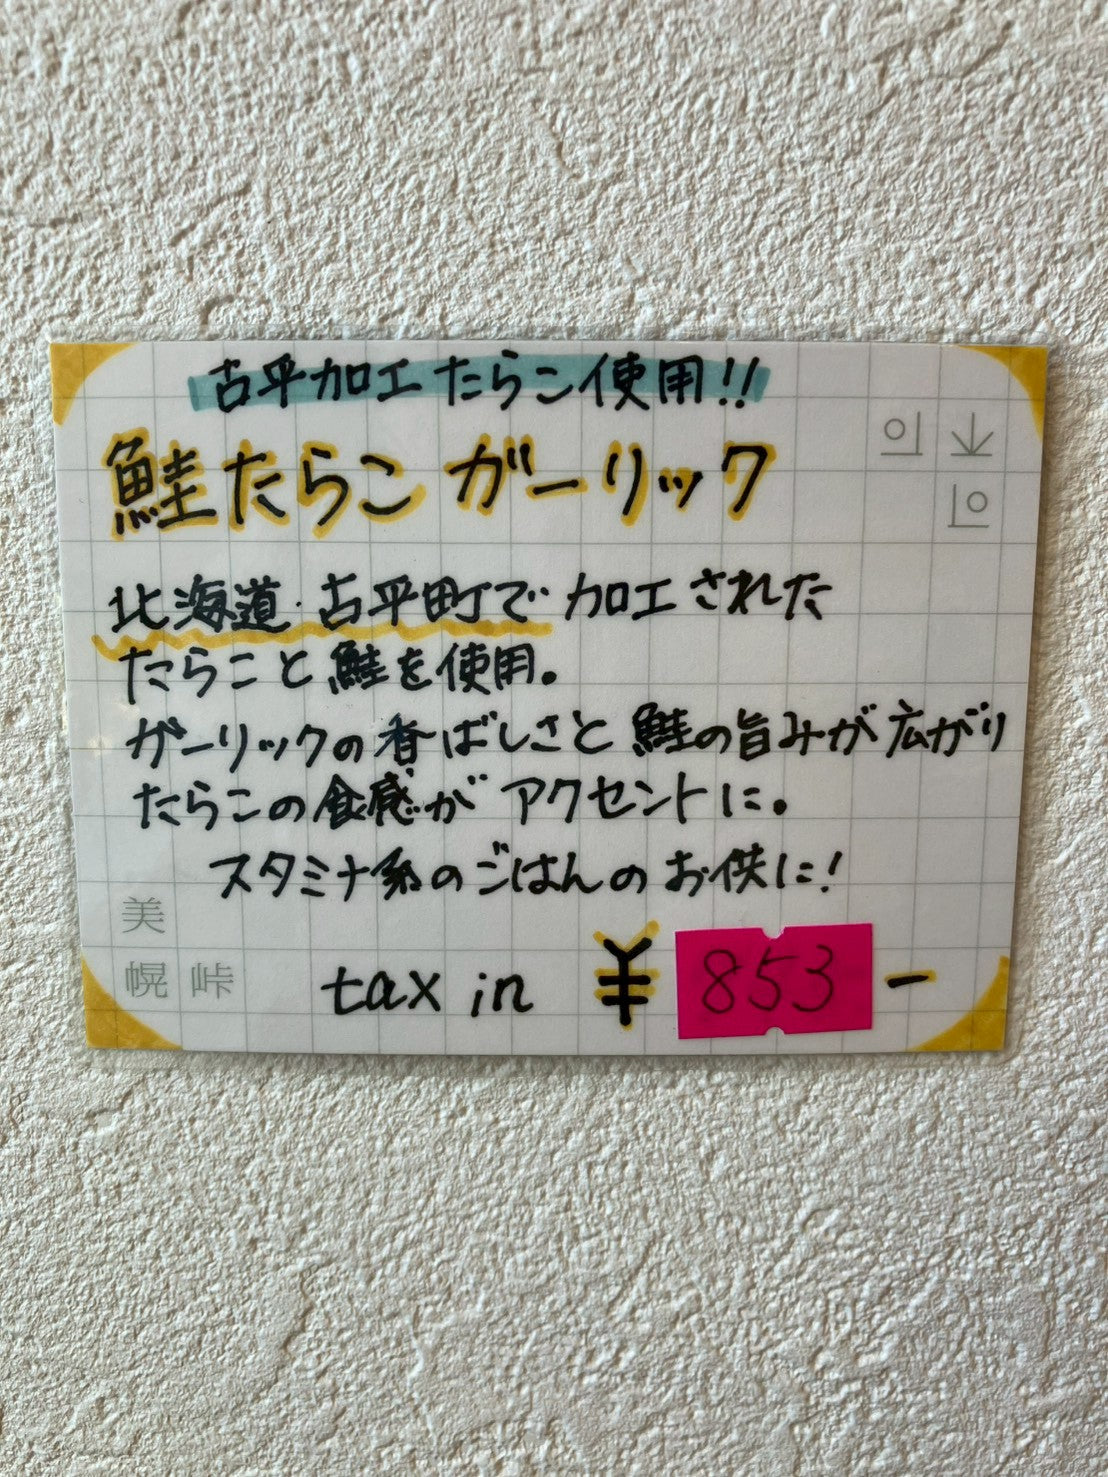 古平加工たらこ使用!!
鮭たらこガーリック
北海道・古平町で加工された
たらこと鮭を使用。
ガーリックの香ばしさと鮭の旨みが広がり
たらこの食感がアクセントに。
スタミナ系のごはんのお供に!
美
幌峠
tax in ¥853-